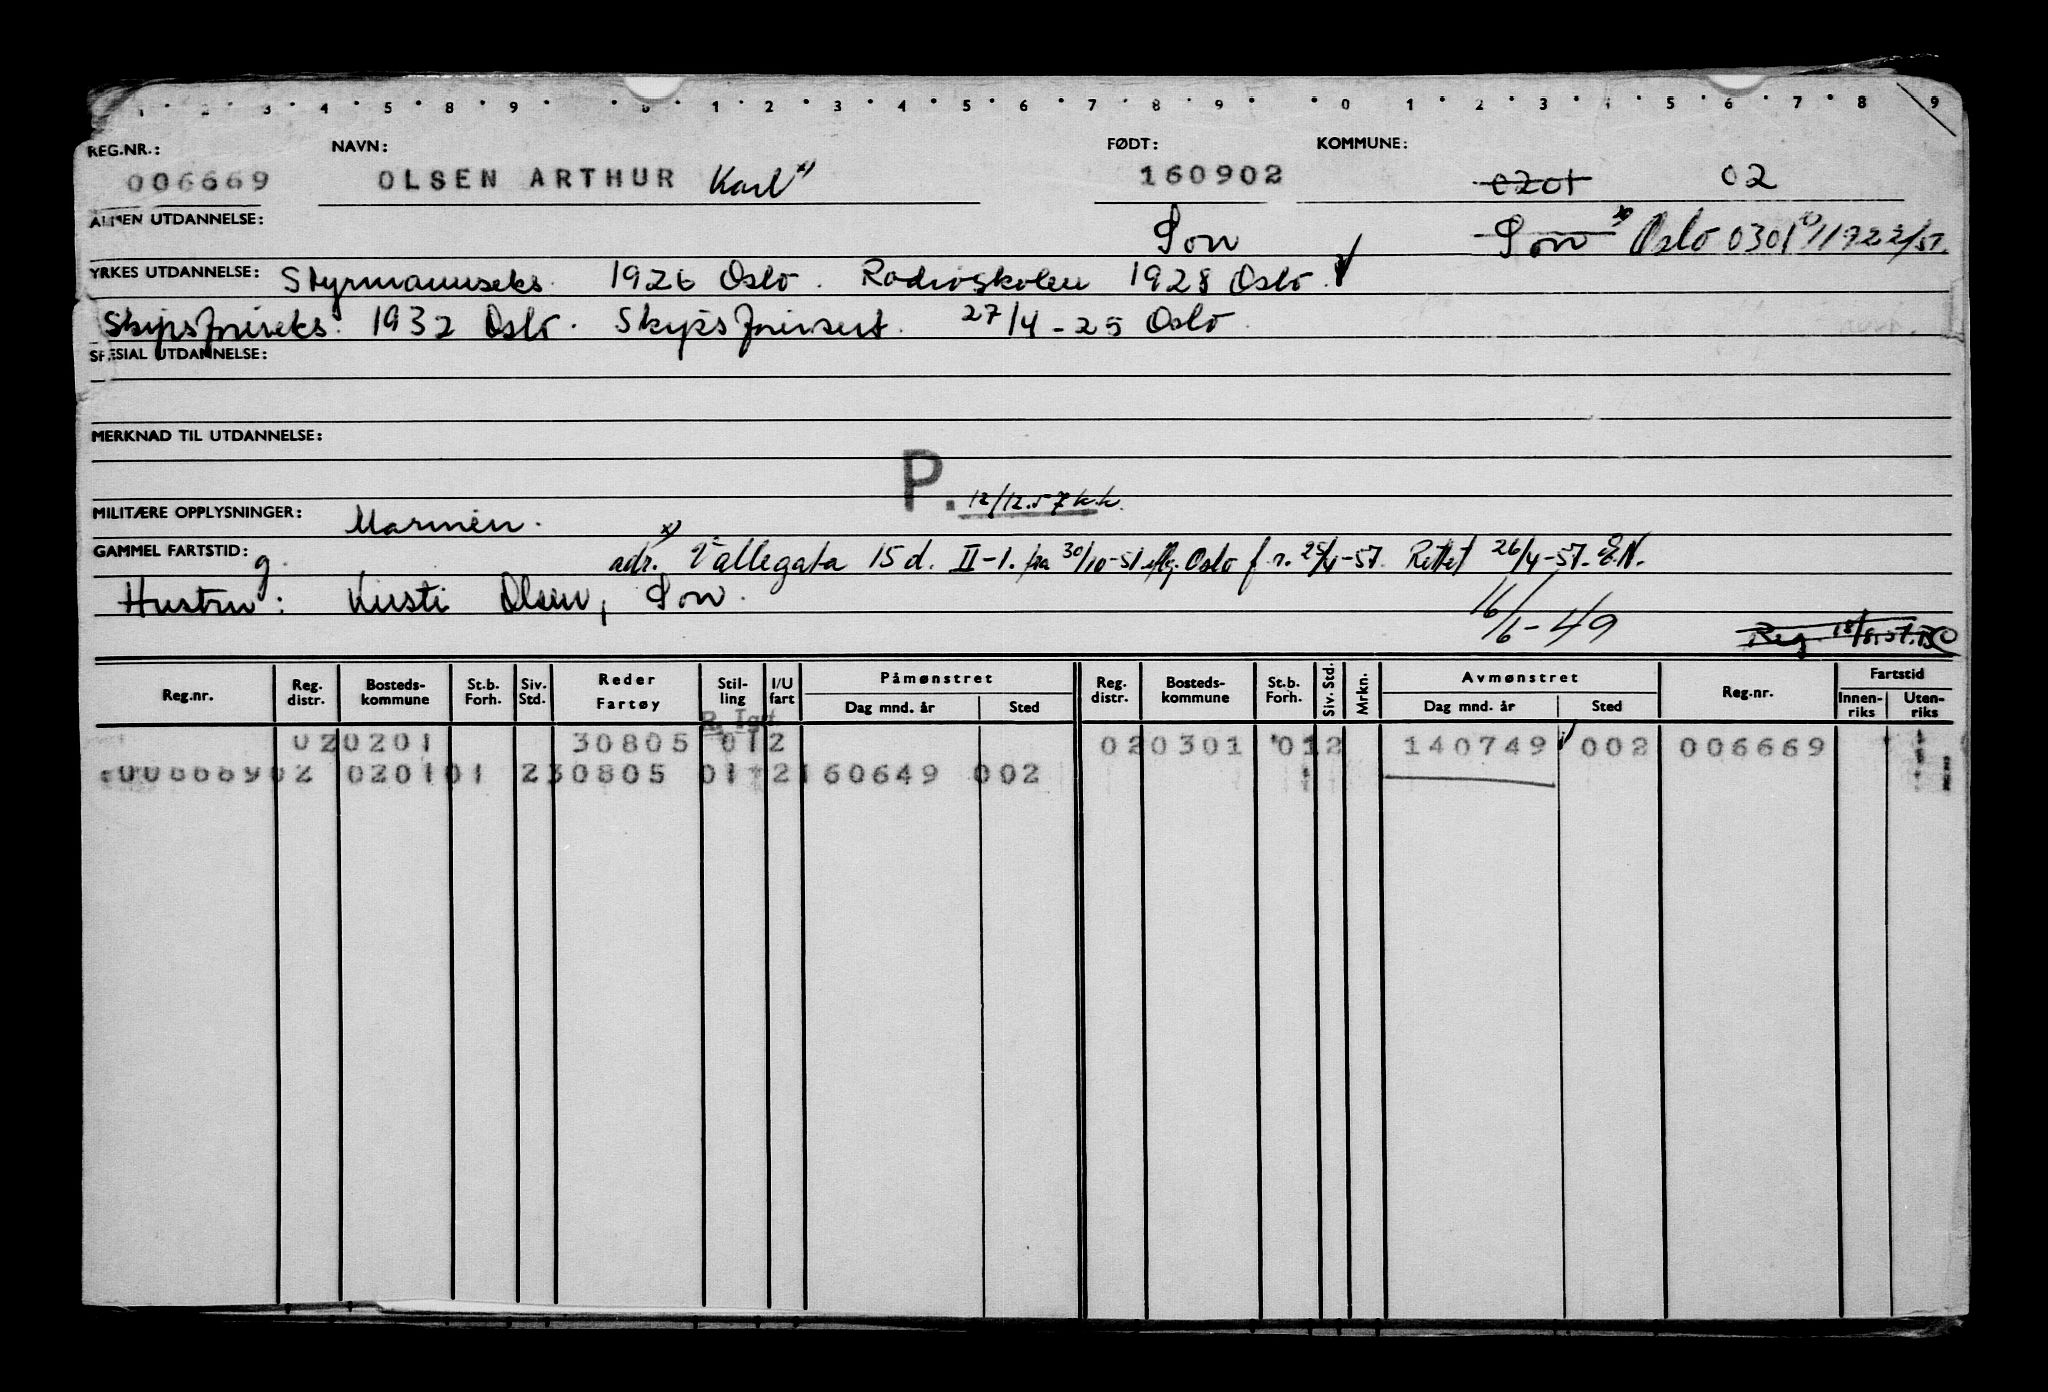 1 · 2 · 3 · 4 · 5 · 8 · 9 · 0 · 1 · 2 · 3 · 4 · 5 · 6 · 7 · 8 · 9 · · 0 1 · 2 · 3 · 4 · 5 · 6 · 7 · 8 9
REG.NR.: NAVN: FØDT: KOMMUNE:
006669 OLSEN ARTHUR Karl x) 160902 0201 02
ALMEN UTDANNELSE: Son Son x) Oslo 0301
YRKES UTDANNELSE: Styrmannseks. 1926 Oslo. Radioskolen 1928 Oslo.
Skipsføreeks. 1932 Oslo. Skipsførersert. 27/4-25 Oslo.
SPESIAL UTDANNELSE:
MERKNAD TIL UTDANNELSE:
P. 12/12.57 k.k.
MILITÆRE OPPLYSNINGER: Marinen.
GAMMEL FARTSTID: g. x) adr. Vallegata 15 d. II-1. fra 30/10-51 iflg. Oslo f.r. 25/4-57. Rettet 26/4-57. E.N.
Hustru: Kirsti Olsen, Son. 16/6-49
Reg. 18/8.57.
Reg.nr. Reg. distr. Bosteds-kommune St.b. Forh. Siv. Std. Reder Fartøy Stil-ling I/U fart Påmønstret Dag mnd. år Sted Reg. distr. Bosteds-kommune St.b. Forh. Siv. Std. Mrkn. Avmønstret Dag mnd. år Sted Reg.nr. Fartstid Innen-riks Uten-riks
020201 30805 012 020301 012 140749 002 006669
00666902 020101 230805 01 2160649 002